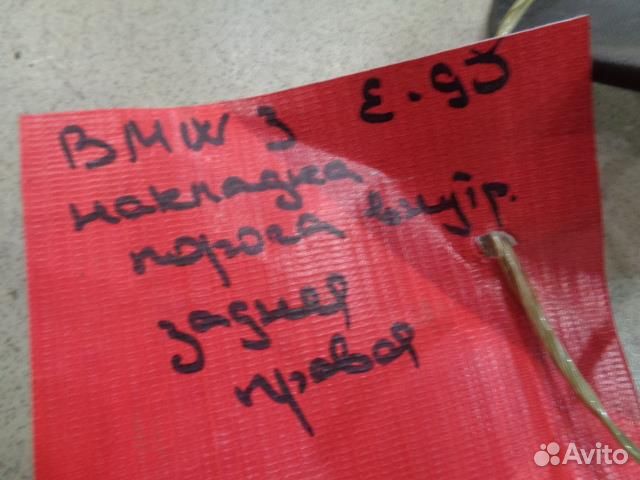 BMW 3 E.93
накладка
порога внутр.
задняя
правая
Avito